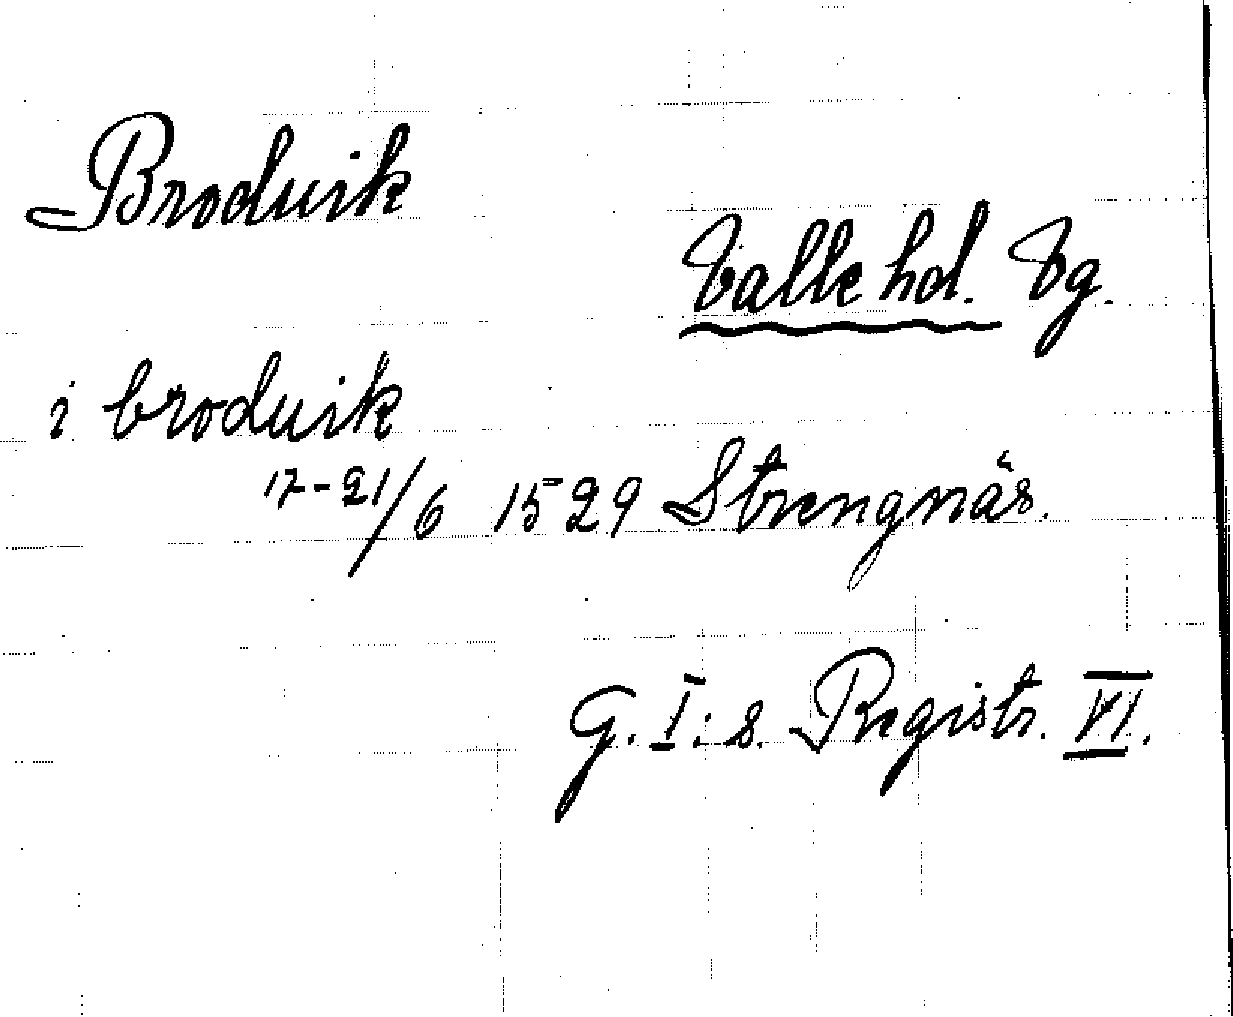 Broduik
Valle hd. Vg.
i broduik
17-21/6 1529 Strengnäs.
G. I:s. Registr. VI.